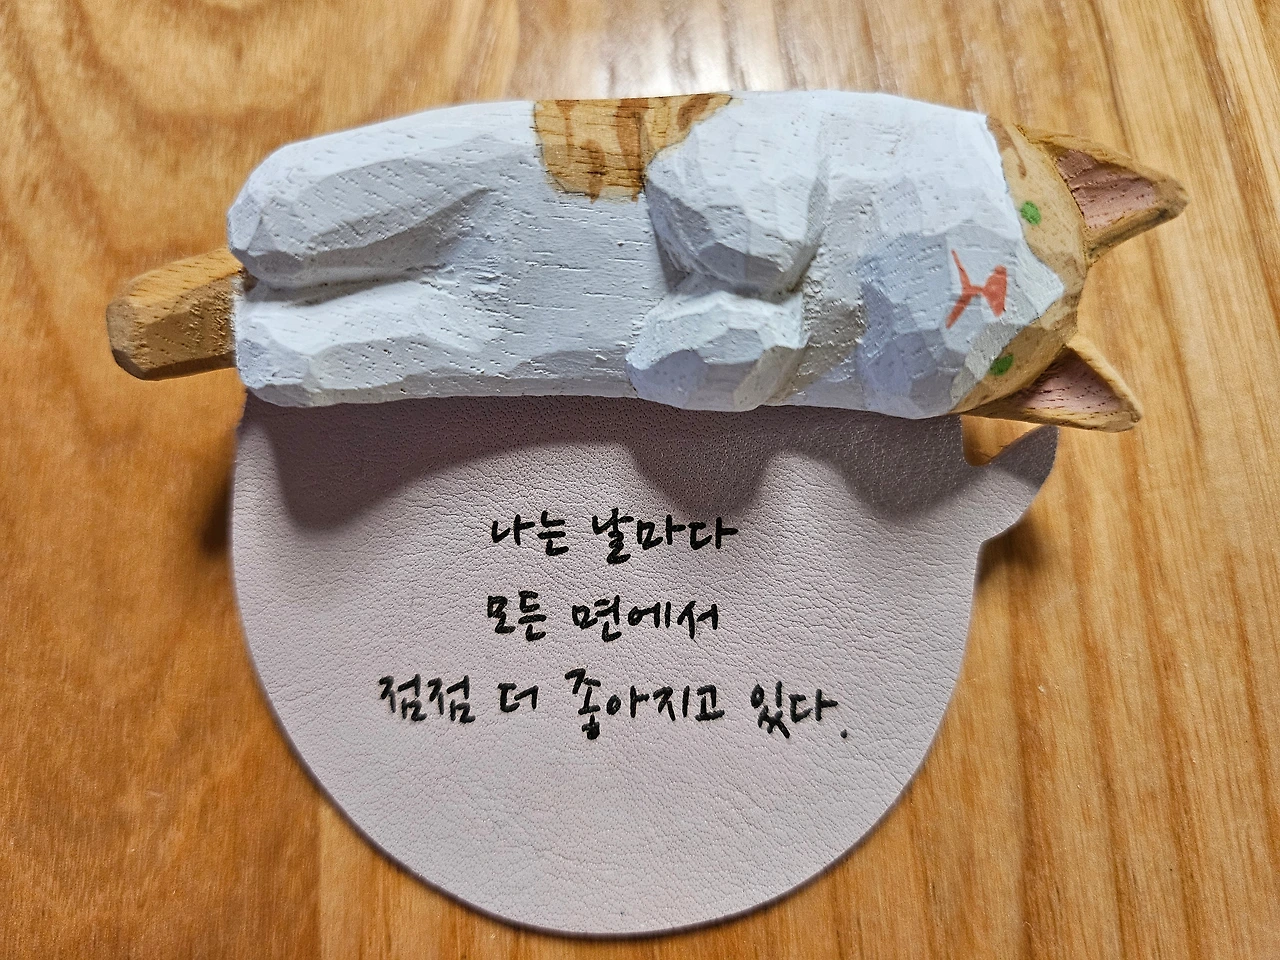 나는 날마다
모든 면에서
점점 더 좋아지고 있다.